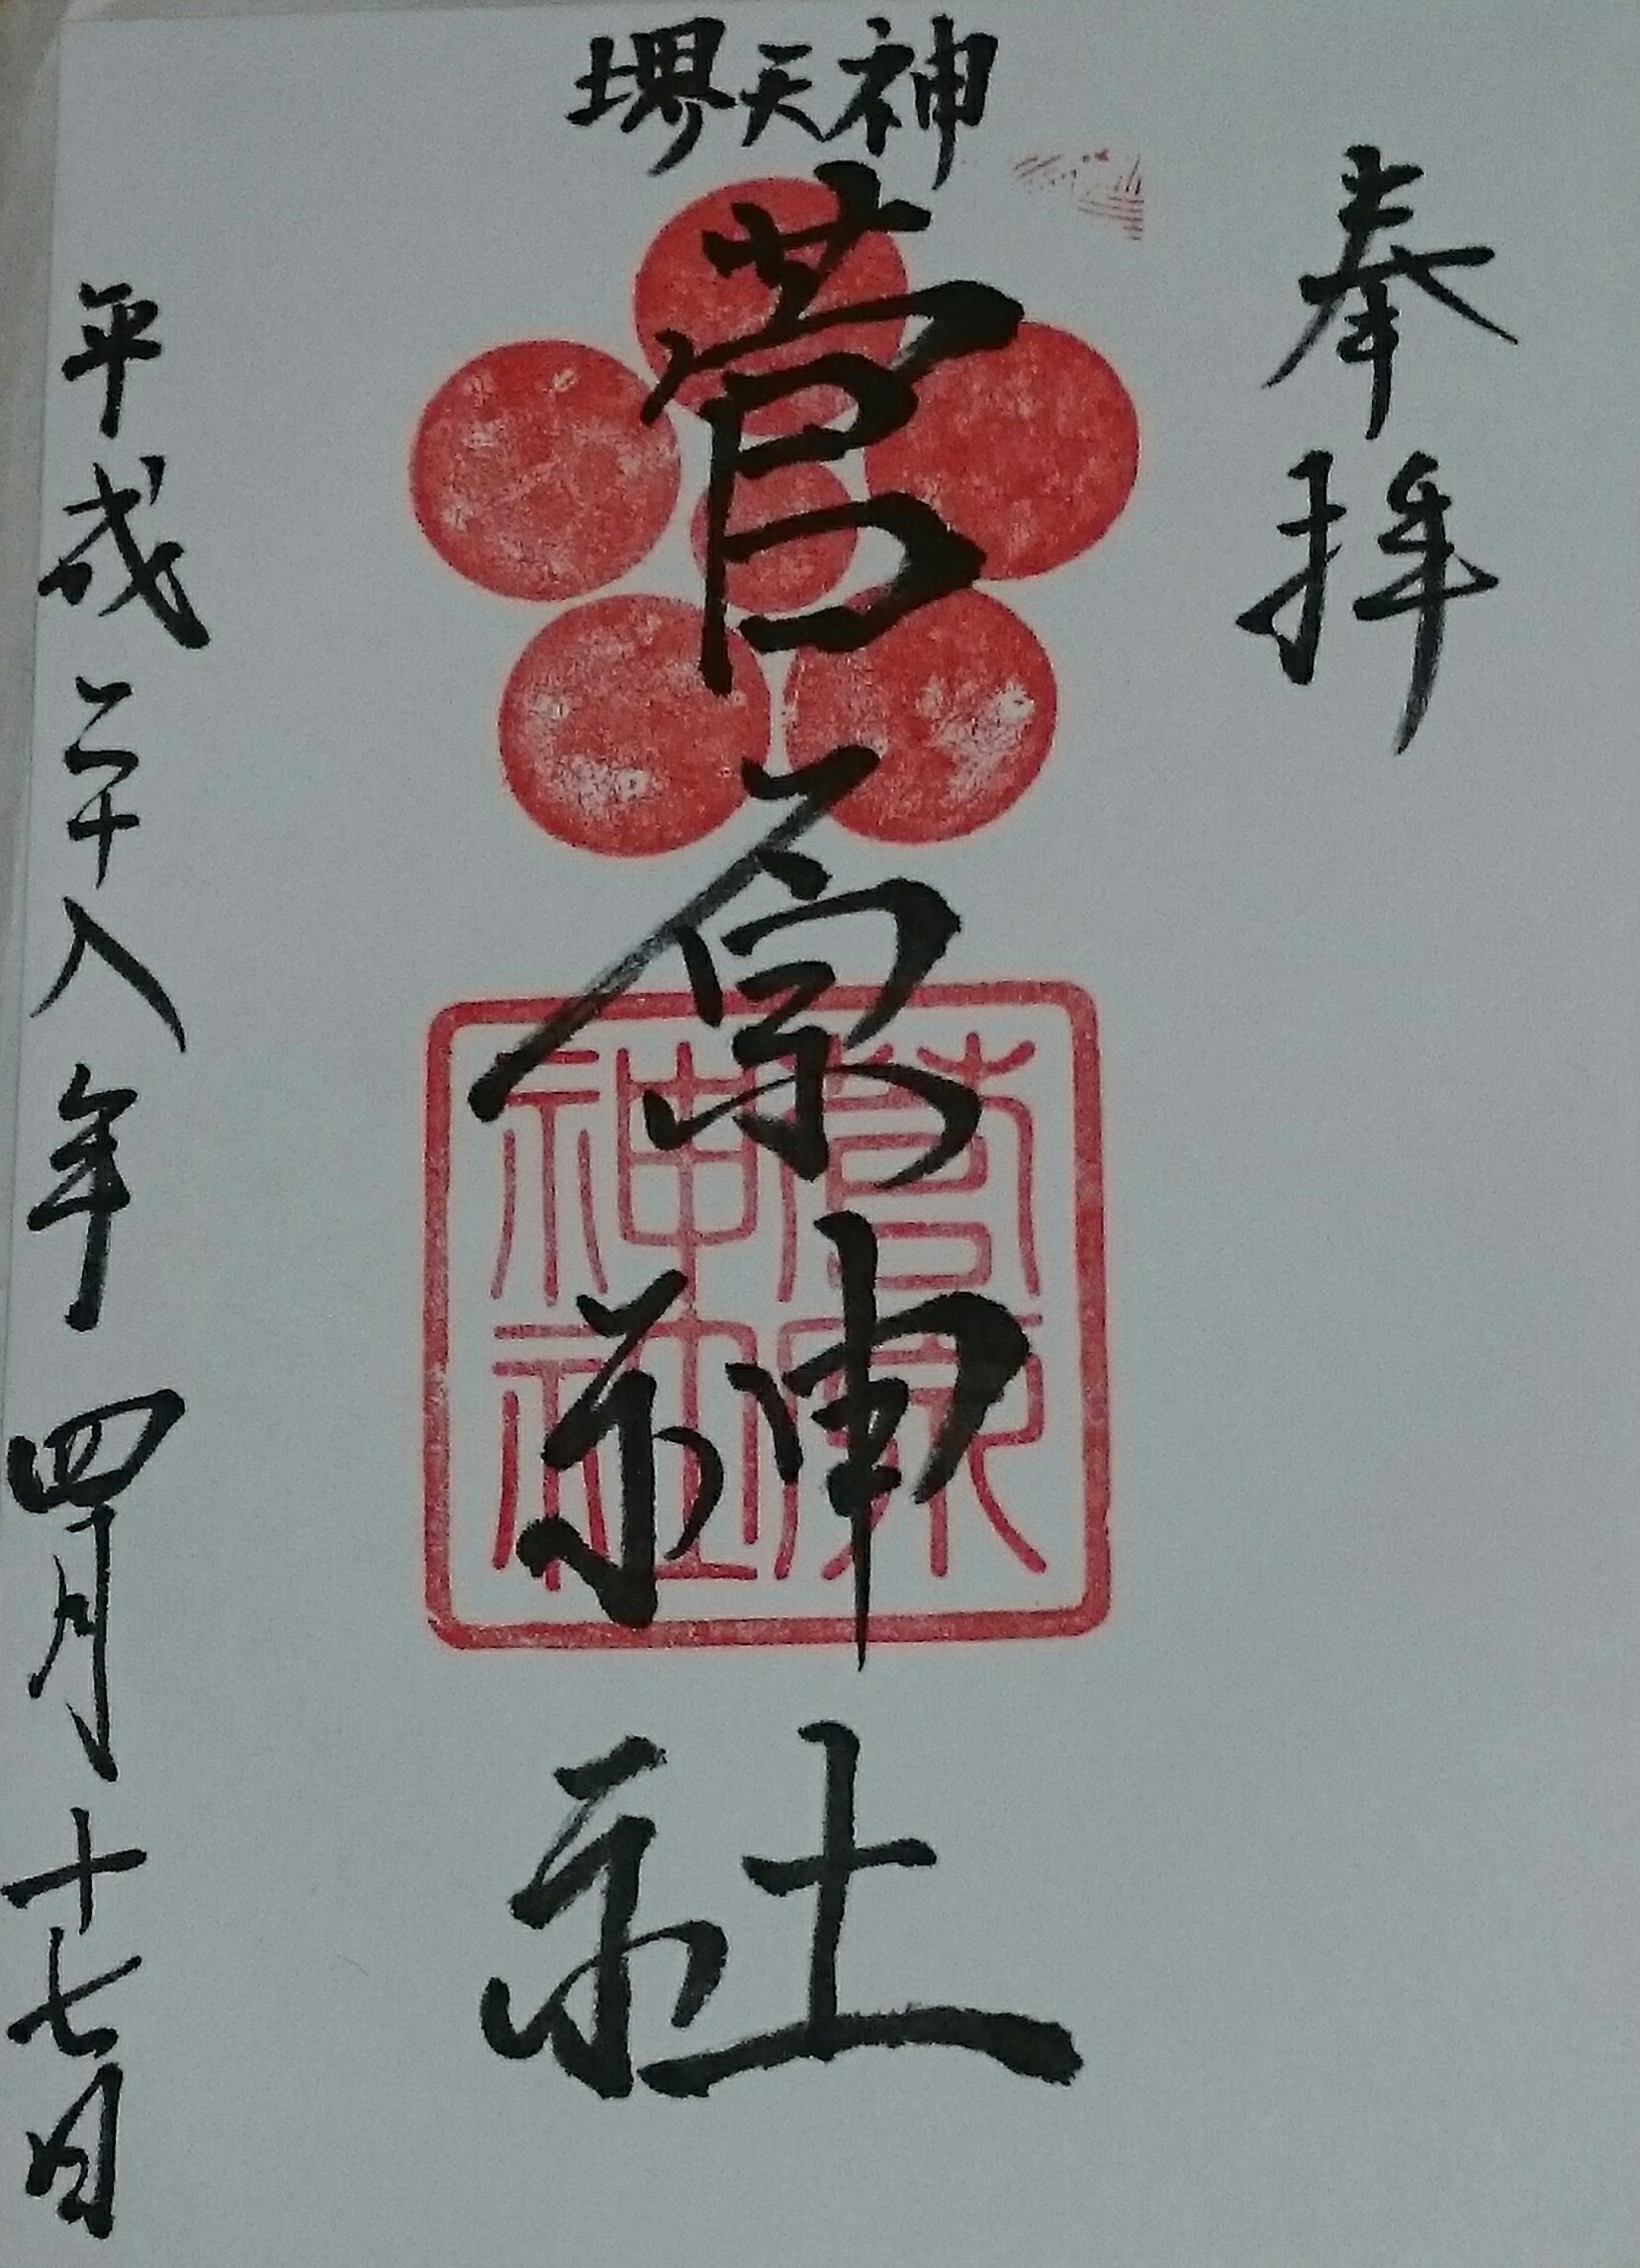 奉拝
堺天神
菅原神社
菅原
神社
平成二十八年四月十七日